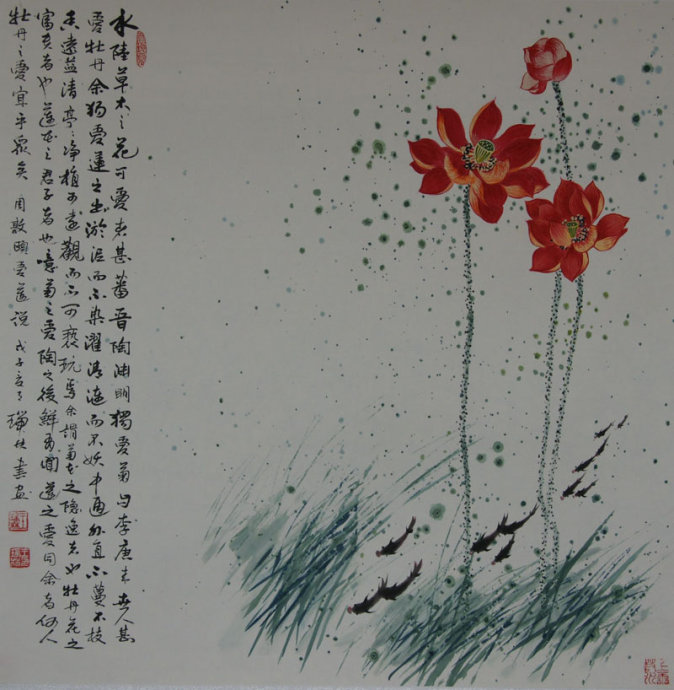 水陸草木之花可愛者甚蕃晋陶淵明獨愛菊自李唐来世人甚
愛牡丹余独愛蓮之出淤泥而不染濯清漣而不妖中通外直不蔓不枝
香遠益清亭亭净植可遠觀而不可褻玩焉余謂菊花之隐逸者也牡丹花之
富貴者也蓮花之君子者也噫菊之愛陶之後鮮有聞蓮之愛同余者何人
牡丹之愛宜乎眾矣周敦頤愛蓮說戊子書画